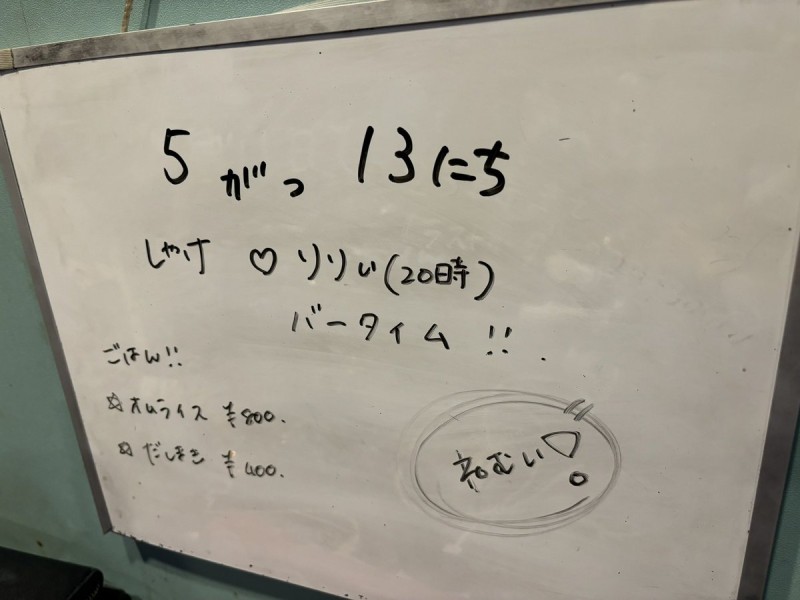 5がつ 13にち
しゃけ ♡ りりぃ(20時)
バータイム!!
ごはん!!
☆オムライス ¥800.
☆だしまき ¥400.
ねむい!